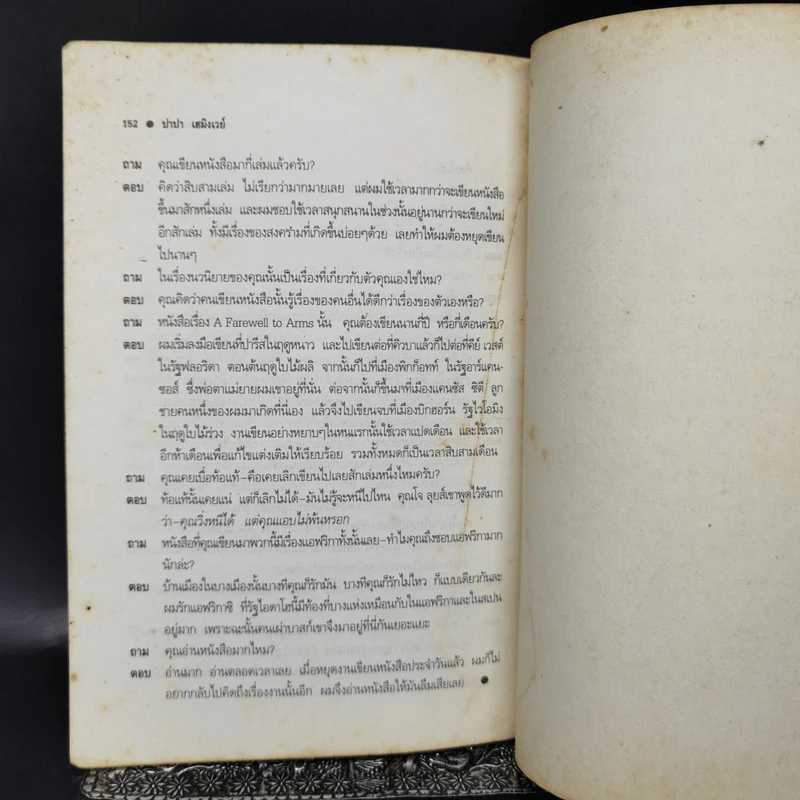 152 ● ปาปา เฮมิงเวย์
ถาม คุณเขียนหนังสือมากี่เล่มแล้วครับ?
ตอบ คิดว่าสิบสามเล่ม ไม่เรียกว่ามากมายเลย แต่ผมใช้เวลามากกว่าจะเขียนหนังสือ
ขึ้นมาสักหนึ่งเล่ม และผมชอบใช้เวลาสนุกสนานในช่วงนั้นอยู่นานกว่าจะเขียนใหม่
อีกสักเล่ม ทั้งมีเรื่องของสงครามที่เกิดขึ้นบ่อยๆด้วย เลยทำให้ผมต้องหยุดเขียน
ไปนานๆ
ถาม ในเรื่องนวนิยายของคุณนั้นเป็นเรื่องที่เกี่ยวกับตัวคุณเองใช่ไหม?
ตอบ คุณคิดว่าคนเขียนหนังสือนั้นรู้เรื่องของคนอื่นได้ดีกว่าเรื่องของตัวเองหรือ?
ถาม หนังสือเรื่อง A Farewell to Arms นั้น คุณต้องเขียนนานกี่ปี หรือกี่เดือนครับ?
ตอบ ผมเริ่มลงมือเขียนที่ปารีสในฤดูหนาว และไปเขียนต่อที่คิวบาแล้วก็ไปต่อที่คีย์ เวสต์
ในรัฐฟลอริดา ตอนต้นฤดูใบไม้ผลิ จากนั้นก็ไปที่เมืองพิกก็อทท์ ในรัฐอาร์แคน-
ซอส์ ซึ่งพ่อตาแม่ยายผมเขาอยู่ที่นั่น ต่อจากนั้นก็ขึ้นมาที่เมืองแคนซัส ซิตี ลูก
ชายคนหนึ่งของผมมาเกิดที่นี่เอง แล้วจึงไปเขียนจบที่เมืองบิกฮอร์น รัฐไวโอมิง
ในฤดูใบไม้ร่วง งานเขียนอย่างหยาบๆในหนแรกนั้นใช้เวลาแปดเดือน และใช้เวลา
อีกห้าเดือนเพื่อแก้ไขแต่งเติมให้เรียบร้อย รวมทั้งหมดก็เป็นเวลาสิบสามเดือน
ถาม คุณเคยเบื่อท้อแท้-คือเคยเลิกเขียนไปเลยสักเล่มหนึ่งไหมครับ?
ตอบ ท้อแท้นั้นเคยแน่ แต่ก็เลิกไม่ได้-มันไม่รู้จะหนีไปไหน คุณโจ ลุยส์เขาพูดไว้ดีมาก
ว่า-คุณวิ่งหนีได้ แต่คุณแอบไม่พ้นหรอก
ถาม หนังสือที่คุณเขียนมาพวกนี้มีเรื่องแอฟริกาทั้งนั้นเลย-ทำไมคุณถึงชอบแอฟริกามาก
นักล่ะ?
ตอบ บ้านเมืองในบางเมืองนั้นบางทีคุณก็รักมัน บางทีคุณก็รักไม่ไหว ก็แบบเดียวกันละ
ผมรักแอฟริกาซิ ที่รัฐไอดาโฮนี้มีท้องที่บางแห่งเหมือนกับในแอฟริกาและในสเปน
อยู่มาก เพราะฉะนั้นคนเผ่าบาสก์เขาจึงมาอยู่ที่นี่กันเยอะแยะ
ถาม คุณอ่านหนังสือมากไหม?
ตอบ อ่านมาก อ่านตลอดเวลาเลย เมื่อหยุดงานเขียนหนังสือประจำวันแล้ว ผมก็ไม่
อยากกลับไปคิดถึงเรื่องงานนั้นอีก ผมจึงอ่านหนังสือให้มันลืมเสียเลย ●